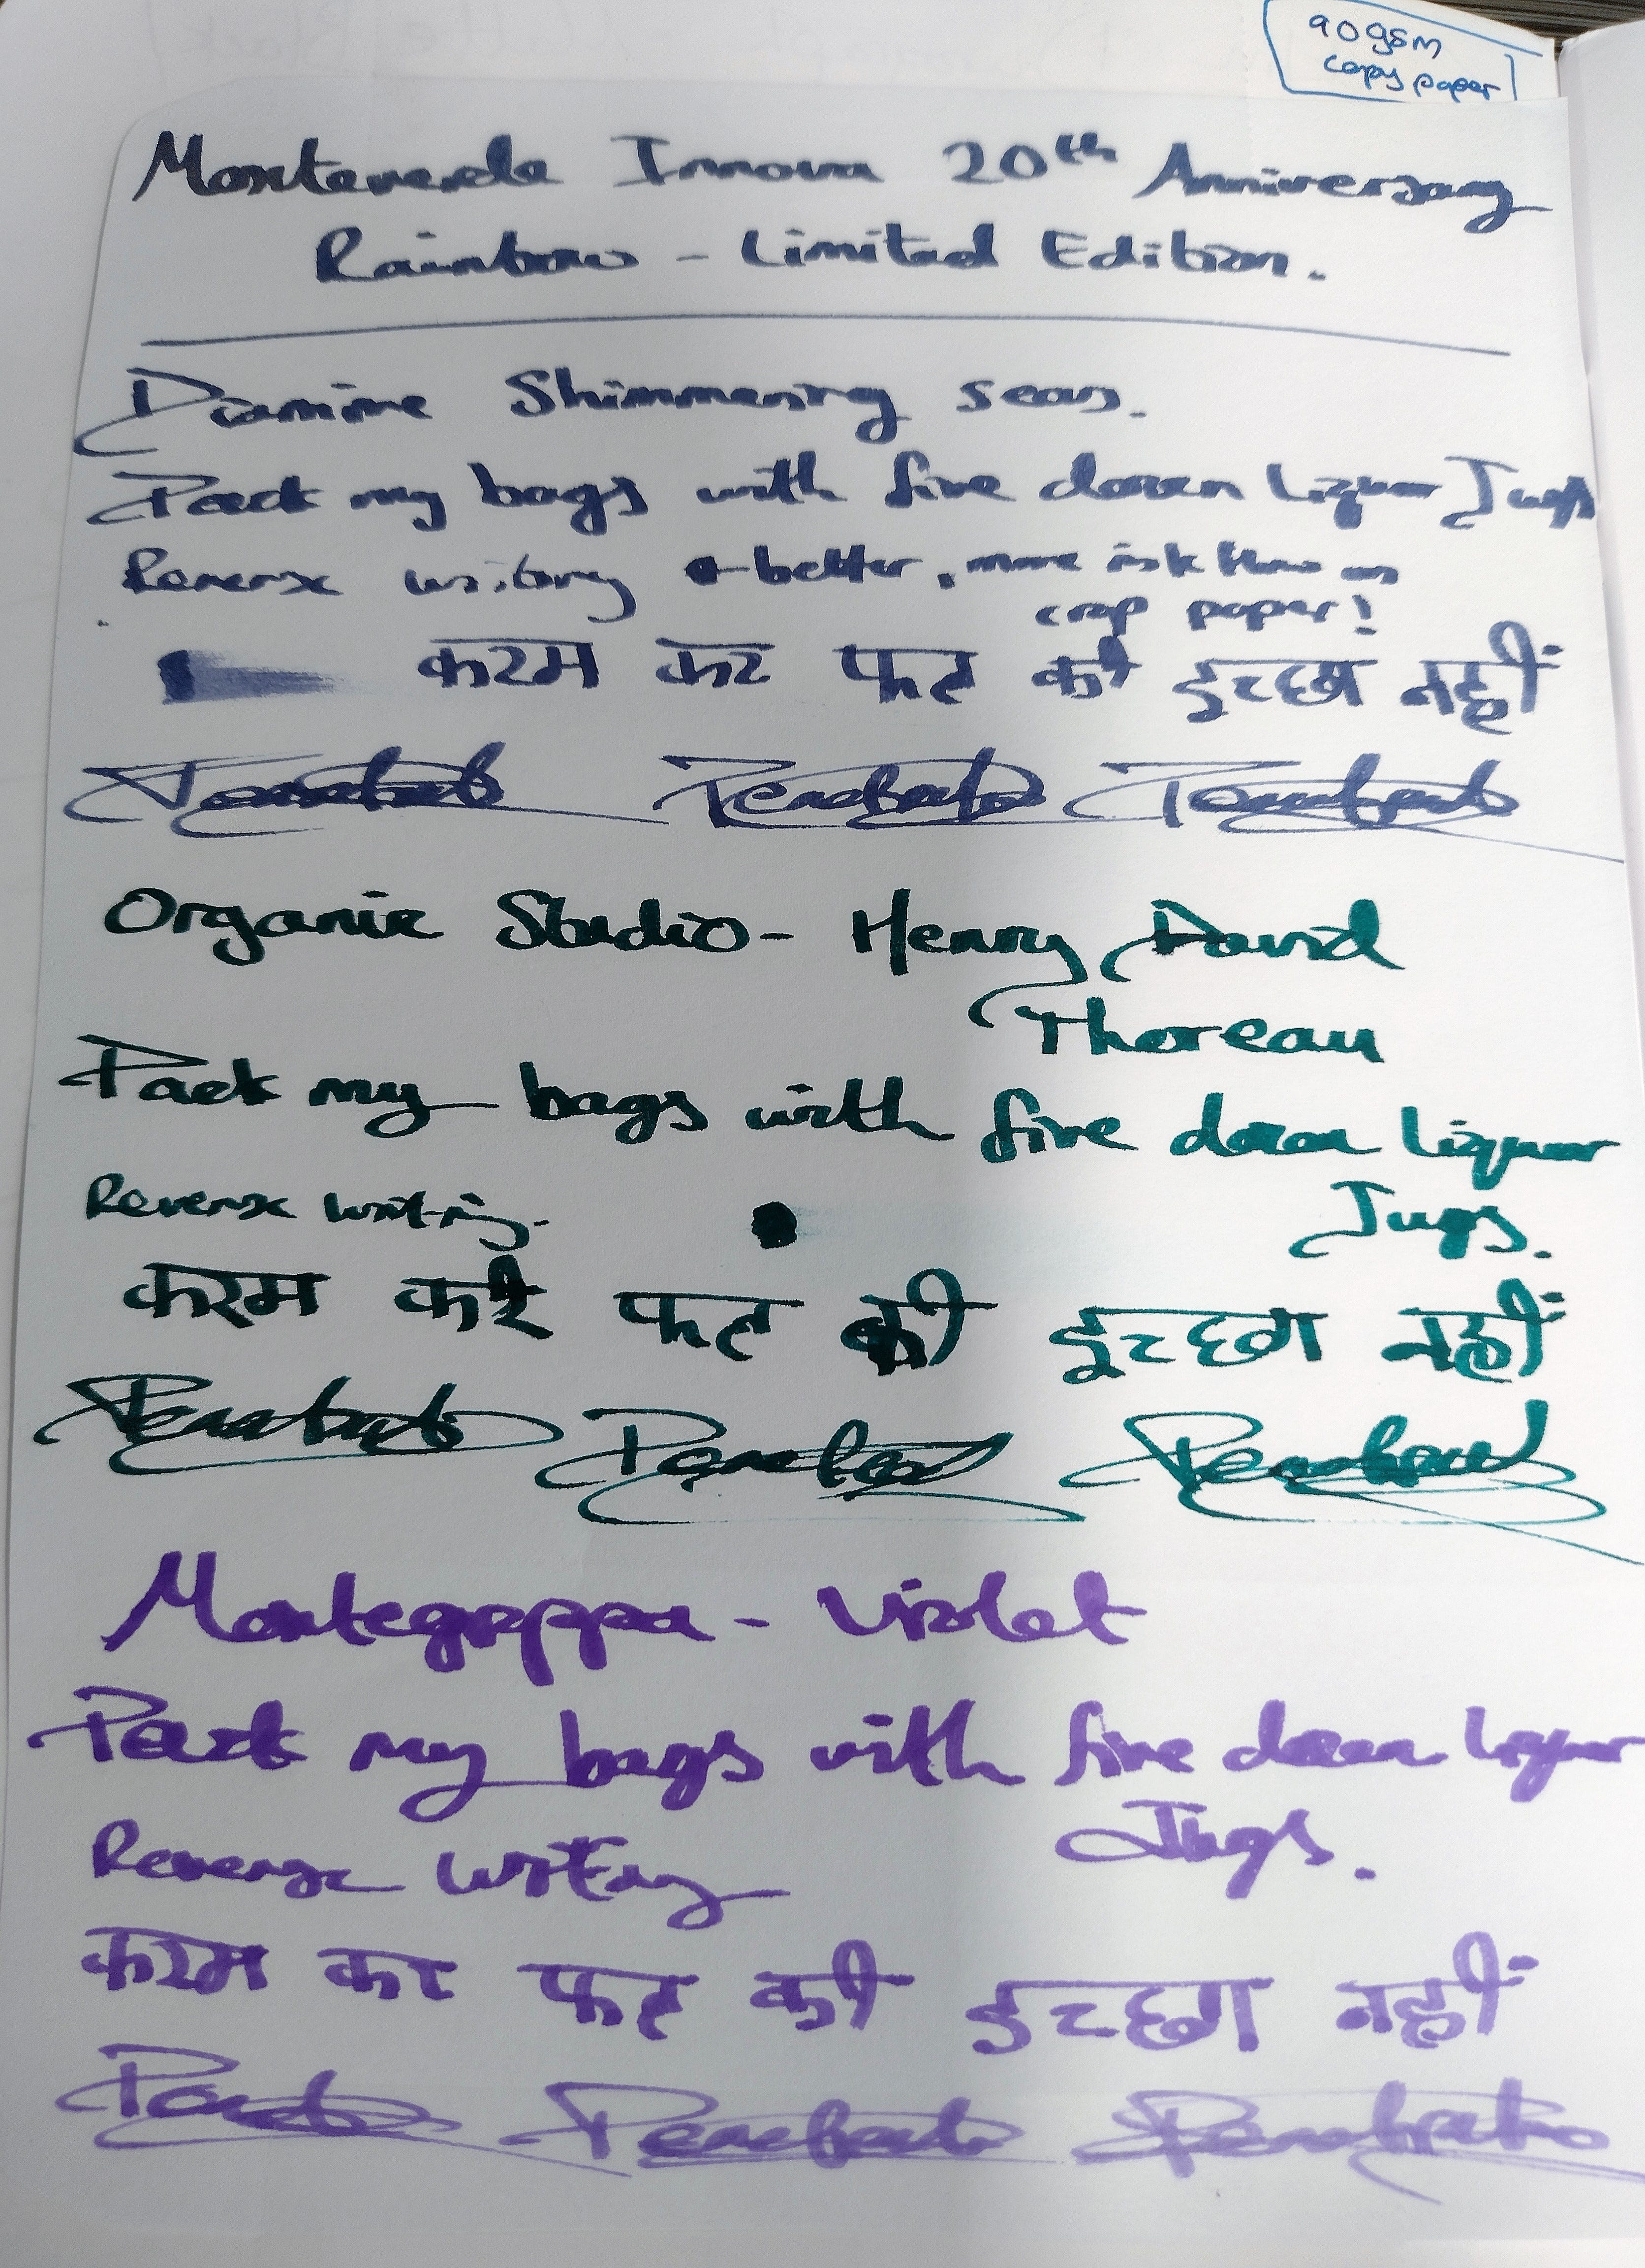 90gsm
copy paper
Monteverde Innova 20th Anniversary
Rainbow - Limited Edition.
Diamine Shimmering seas.
Pack my bags with five dozen liquor Jugs
Reverse writing better, more ink flow on
crap paper!
करम कर फट की इच्छा नहीं
Organic Studio - Henry David
Thoreau
Pack my bags with five dozen liquor
Jugs.
Reverse writing.
करम कर फट की इच्छा नहीं
Montegrappa - Violet
Pack my bags with five dozen liquor
Jugs.
Reverse writing
करम कर फट की इच्छा नहीं